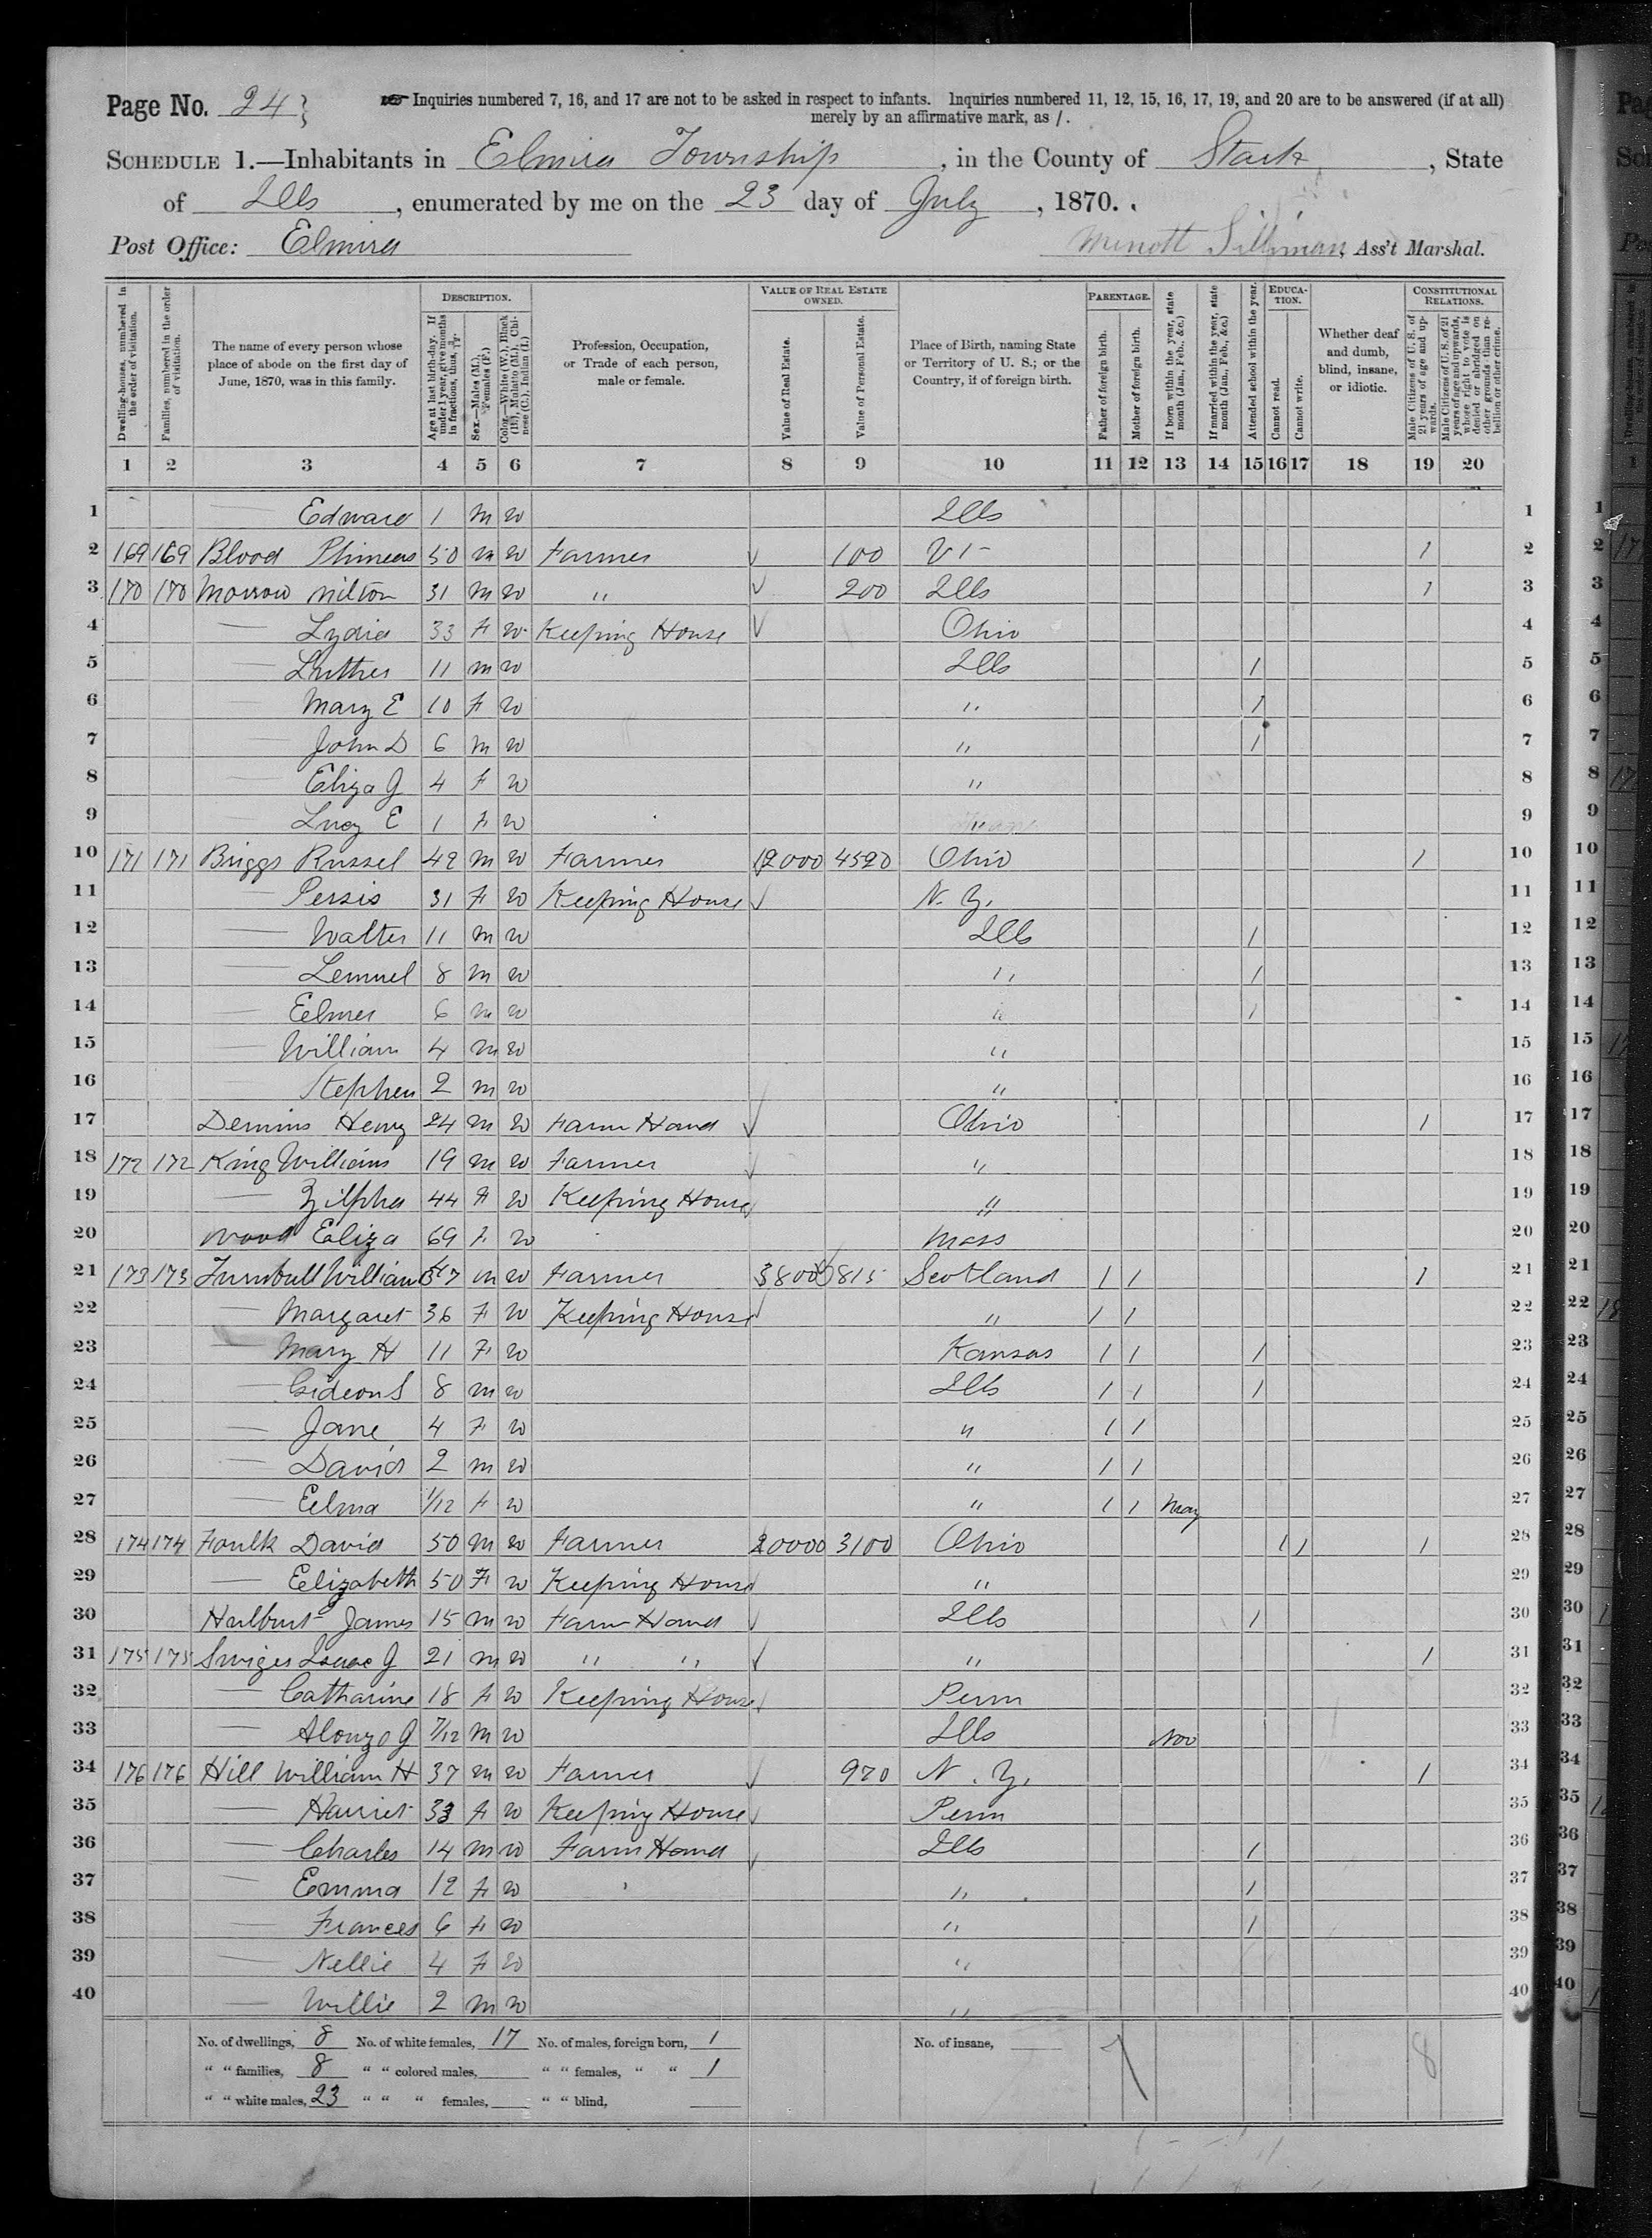 Page No. 24
Inquiries numbered 7, 16, and 17 are not to be asked in respect to infants. Inquiries numbered 11, 12, 15, 16, 17, 19, and 20 are to be answered (if at all)
merely by an affirmative mark, as /.
Schedule 1.—Inhabitants in Elmira Township, in the County of Stark, State
of Ills, enumerated by me on the 23 day of July, 1870.
Post Office: Elmira Minott Silliman, Ass't Marshal.
Description. Value of Real Estate owned. Parentage. Education. Constitutional Relations.
Dwelling-houses, numbered in the order of visitation.
Families, numbered in the order of visitation.
The name of every person whose place of abode on the first day of June, 1870, was in this family.
Age at last birth-day. If under 1 year, give months in fractions, thus, 3/12.
Sex.—Males (M.), Females (F.)
Color.—White (W.), Black (B.), Mulatto (M.), Chinese (C.), Indian (I.)
Profession, Occupation, or Trade of each person, male or female.
Value of Real Estate.
Value of Personal Estate.
Place of Birth, naming State or Territory of U. S.; or the Country, if of foreign birth.
Father of foreign birth.
Mother of foreign birth.
If born within the year, state month (Jan., Feb., &c.)
If married within the year, state month (Jan., Feb., &c.)
Attended school within the year.
Cannot read.
Cannot write.
Whether deaf and dumb, blind, insane, or idiotic.
Male Citizens of U. S. of 21 years of age and upwards.
Male Citizens of U. S. of 21 years of age and upwards, whose right to vote is denied or abridged on other grounds than rebellion or other crime.
1 2 3 4 5 6 7 8 9 10 11 12 13 14 15 16 17 18 19 20
1 — Edward 1 m w Ills 1
2 169 169 Blood Phineas 50 m w Farmer 100 Vt 1 2
3 170 170 Morrow Milton 31 m w " 200 Ills 1 3
4 — Lydia 33 F w Keeping House Ohio 4
5 — Luther 11 m w Ills 1 5
6 — Mary E 10 F w " 1 6
7 — John D 6 m w " 1 7
8 — Eliza J 4 F w " 8
9 — Lucy E 1 F w 9
10 171 171 Briggs Russel 42 m w Farmer 12000 4520 Ohio 1 10
11 — Persis 31 F w Keeping House N. Y. 11
12 — Walter 11 m w Ills 1 12
13 — Lemuel 8 m w " 1 13
14 — Elmer 6 m w " 1 14
15 — William 4 m w " 15
16 — Stephen 2 m w " 16
17 Demins Henry 24 m w Farm Hand Ohio 1 17
18 172 172 King William 19 m w Farmer " 18
19 — Zilpha 44 F w Keeping House " 19
20 Wood Eliza 69 F w Mass 20
21 173 173 Turnbull William m w Farmer 815 Scotland 1 1 1 21
22 — Margaret 36 F w Keeping House " 1 1 22
23 — Mary H 11 F w Kansas 1 1 1 23
24 — Gideon S 8 m w Ills 1 1 1 24
25 — Jane 4 F w " 1 1 25
26 — David 2 m w " 1 1 26
27 — Elma 1/12 F w " 1 1 May 27
28 174 174 Foulk David 50 m w Farmer 20000 3100 Ohio 1 1 1 28
29 — Elizabeth 50 F w Keeping House " 29
30 Hulburt James 15 m w Farm Hand Ills 1 30
31 175 175 Swiger Isaac G 21 m w " " " 1 31
32 — Catharine 18 F w Keeping House Penn 32
33 — Alonzo G 7/12 m w Ills Nov 33
34 176 176 Hill William H 37 m w Farmer 970 N. Y. 1 34
35 — Harriet 33 F w Keeping House Penn 35
36 — Charles 14 m w Farm Hand Ills 1 36
37 — Emma 12 F w " 1 37
38 — Frances 6 F w " 1 38
39 — Nellie 4 F w " 39
40 — Willie 2 m w " 40
No. of dwellings, 8 No. of white females, 17 No. of males, foreign born, 1 No. of insane, 7 8
" " families, 8 " " colored males, " " females, " " 1
" " white males, 23 " " " females, " " blind,